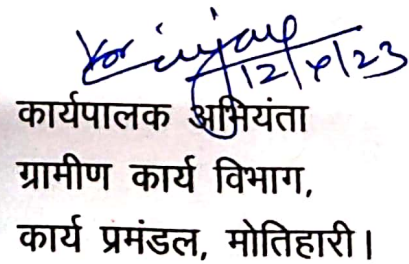 12/4/23
कार्यपालक अभियंता
ग्रामीण कार्य विभाग,
कार्य प्रमंडल, मोतिहारी।